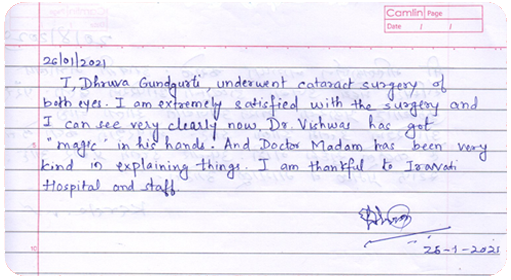 Camlin Page
Date / /
26/01/2021
I, Dhruva Gundgurti, underwent cataract surgery of
both eyes. I am extremely satisfied with the surgery and
I can see very clearly now. Dr. Vishwas has got
"magic" in his hands. And Doctor Madam has been very
kind in explaining things. I am thankful to Iravati
Hospital and staff
26-1-2021